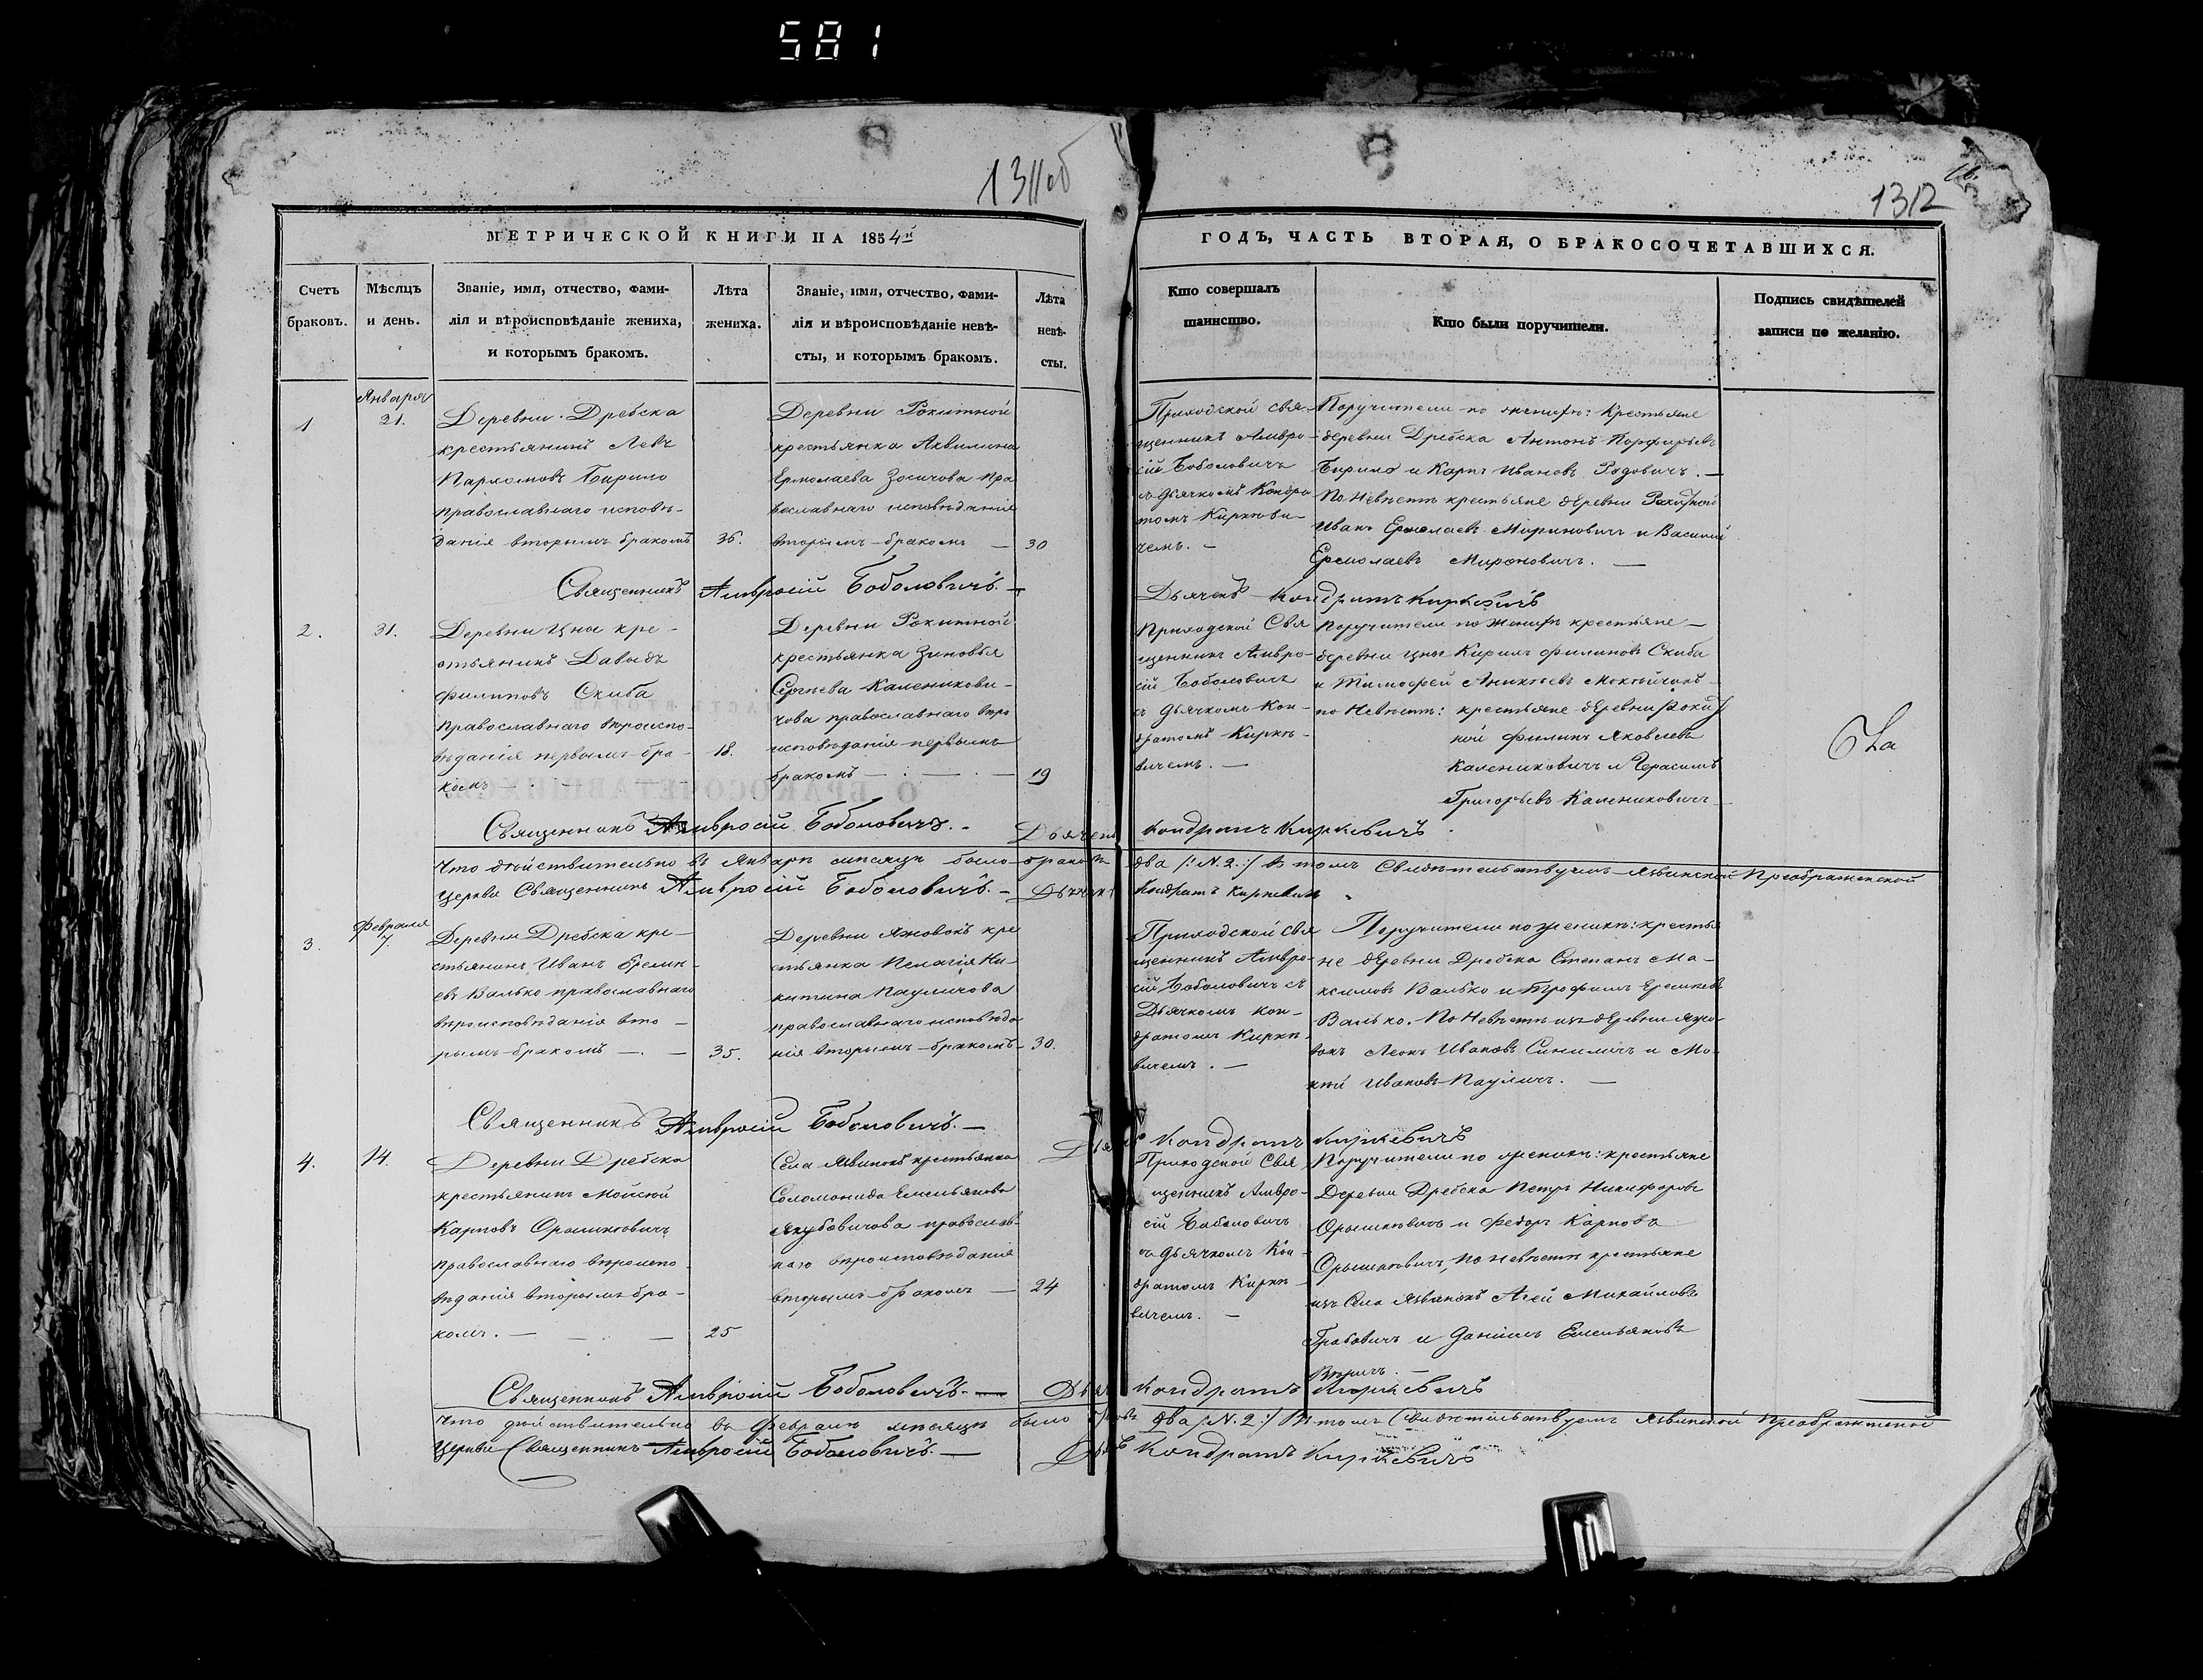 581
1311об
1312
МЕТРИЧЕСКОЙ КНИГИ НА 1854й
ГОДЪ, ЧАСТЬ ВТОРАЯ, О БРАКОСОЧЕТАВШИХСЯ.
Счетъ браковъ.
Мѣсяцъ и день.
Званіе, имя, отчество, фами-
лія и вѣроисповѣданіе жениха,
и которымъ бракомъ.
Лѣта
жениха.
Званіе, имя, отчество, фами-
лія и вѣроисповѣданіе невѣ-
сты, и которымъ бракомъ.
Лѣта
невѣ-
сты.
Кто совершалъ
таинство.
Кто были поручители.
Подпись свидѣтелей
записи по желанію.
1
Января
21.
Деревни Дребска
крестьянинъ Левъ
Пархомовъ Бирило
православнаго исповѣ-
данія вторымъ бракомъ
36.
Деревни Рокитной
крестьянка Аквилина
Ермолаева Зосичова пра
вославнаго исповѣданія
вторымъ бракомъ —
30
Приходской свя-
щенникъ Амвро-
сій Боболовичъ
съ дьячкомъ Кондра
томъ Киркеви-
чемъ. —
Поручители по женихѣ: крестьяне
деревни Дребска Антонъ Порфирьевъ
Бирило и Карпъ Ивановъ Радовичъ. —
По Невѣстѣ крестьяне деревни Рокитной
Иванъ Ермолаевъ Мироновичъ и Василій
Ермолаевъ Мироновичъ. —
Священникъ Амвросій Боболовичъ. —
Дьячекъ Кондратъ Киркевичъ
2.
31.
Деревни Цна кре-
стьянинъ Давыдъ
Филиповъ Скиба
православнаго вѣроиспо-
вѣданія первымъ бра-
комъ —
18.
Деревни Рокитной
крестьянка Зиновья
Сергѣева Каленикови-
чова православнаго вѣро
исповѣданія первымъ
бракомъ —
19
Приходской Свя
щенникъ Амвро-
сій Боболовичъ
съ дьячкомъ Кон-
дратомъ Киркѣ-
вичемъ. —
Поручители по женихѣ крестьяне —
деревни Цны Кирилъ Филиповъ Скиба
и Тимофей
по Невѣстѣ: крестьяне деревни Рокит
ной Филипъ Яковлевъ
Каленикович и Герасимъ
Григорьевъ Каленикович
Священникъ Амвросій Боболовичъ. —
Дьячекъ Кондратъ Киркевичъ
Что дѣйствительно въ Январѣ мѣсяцѣ было браковъ два /: N. 2. :/ въ томъ Свидѣтельствуемъ Явинской Преображенской
Церкви Священникъ Амвросій Боболовичъ. — Дьячекъ Кондратъ Киркевичъ
3.
Февраля
7.
Деревни Дребска кре-
стьянинъ Иванъ Еремѣ-
евъ Валько православнаго
вѣроисповѣданія вто-
рымъ бракомъ —. —
35.
Деревни Яжовокъ кре
стьянка Пелагія Ни-
китина Пауличова
православнаго исповѣда
нія вторымъ бракомъ
30.
Приходской Свя
щенникъ Амвро-
сій Боболовичъ съ
Дьячкомъ Кон-
дратомъ Киркѣ-
вичемъ. —
Поручители по женихѣ: крестья
не деревни Дребска Степанъ Ма-
ксимовъ Валько и Трофимъ Еремѣевъ
Валько. По Невѣстѣ изъ деревни Яжо-
вокъ Леонъ Ивановъ и Мо-
кей Ивановъ Пауличъ. —
Священникъ Амвросій Боболовичъ. —
Кондратъ Киркевичъ
4.
14.
Деревни Дребска
крестьянинъ Мойсей
Карповъ Орышкѣвичъ
православнаго вѣроиспо-
вѣданія вторымъ бра-
комъ. —
25
Села Явинокъ крестьянка
Соломонида Емельянова
Якубовичова православ-
наго вѣроисповѣданія
вторымъ бракомъ —
24
Приходской Свя
щенникъ Амвро-
сій Боболовичъ
съ дьячкомъ Кон-
дратомъ Киркѣ-
вичемъ. —
Поручители по женихѣ: крестьяне
Деревни Дребска Петръ Никифоровъ
Орышкѣвичъ и Федоръ Карповъ
Орышкѣвичъ, по невѣстѣ крестьяне
изъ Села Явинокъ Агей Михайловъ
Грабовичъ и Даніилъ Емельяновъ
Священникъ Амвросій Боболовичъ. —
Кондратъ Киркевичъ
Что дѣйствительно въ Февралѣ мѣсяцѣ было браковъ два /: N. 2 :/ въ томъ Свидѣтельствуемъ Явинской Преображенской
Церкви Священникъ Амвросій Боболовичъ. — Кондратъ Киркевичъ